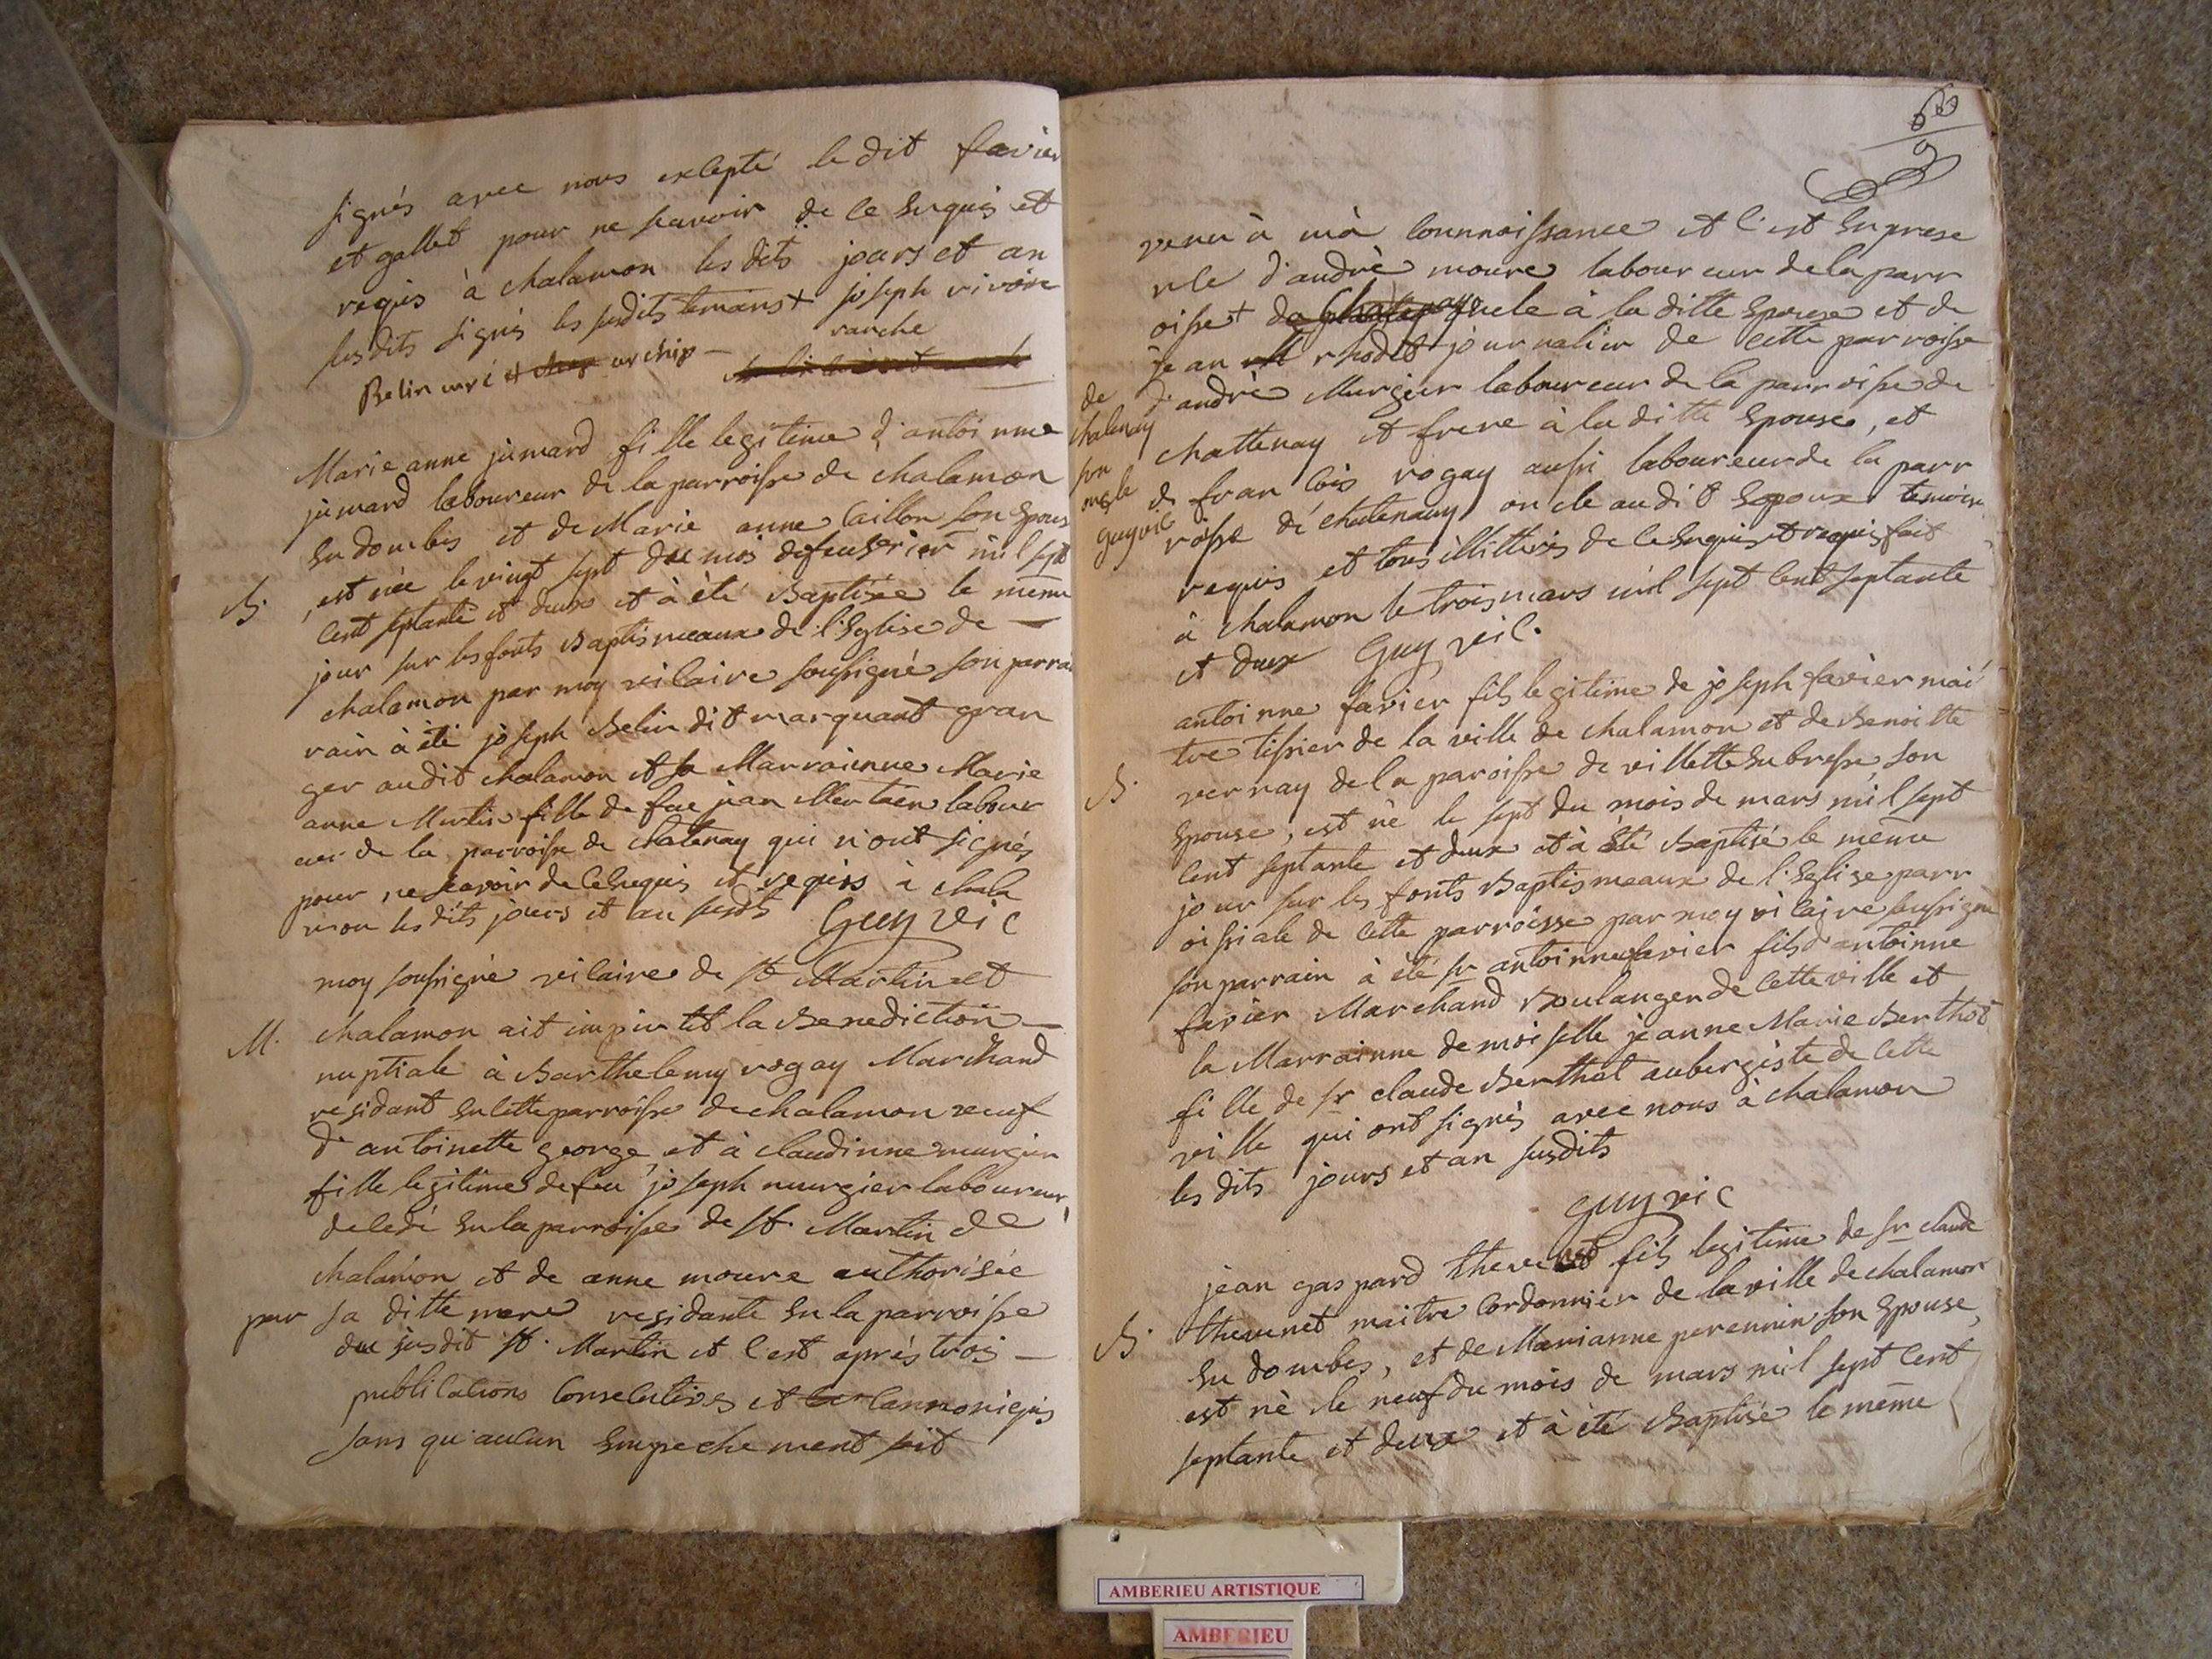 signés avec nous exlepté le dit favier
et gallet pour ne scavoir de ce Enquis et
requis à chalamon les dits jours et an
susdits signés les susdits temains + joseph vivóire
ranche
Belin curé et archip –
Marie anne jumard fille legitime d'antoinne
jumard laboureur de la parroisse de chalamon
En dombes et de Marie anne Caillon son Epous
B. est née le vingt sept du mois de feuvrier mil sept
Cent septante et deux et à été Baptisée le même
jour sur les fonts Baptismeaux de l'Eglise de –
chalamon par moy vicaire soussigné son parra
rain à été joseph Belin dit marquant gran
ger audit chalamon et sa Marrainne Marie
anne Martin fille de feu jean Martain labour
eur de la parroisse de chatenay qui n'ont signés
pour ne scavoir de ce Enquis et requis à chala
mon les dits jours et an susdts Guy vic
moy soussigné vicaire de st Martin et
M. chalamon ait impartit la Benediction –
nuptiale à Barthelemy rogay Marchand
residant En cette parroisse de chalamon veuf
d'antoinette george, et à claudinne murgier
fille legitime de feu joseph murgier laboureur
decedé En la parroisse de st. Martin de
chalamon et de anne moure authorisée
par sa ditte mere residante En la parroisse
du susdit st. Martin et c'est après trois –
publications Conseccutives et Cannoniques
sans qu'aucun Empechement soit
venu à mà Connnoissance et c'est En prese
nce d'andrè moure laboureur de la parr
oisse + oncle à la ditte Epouse et de
jean rhodet journalier de cette parroisse
de
chatenay
son
oncle
guy vic
d'andrè Murgier laboureur de la parroisse de
chattenay et frere à la ditte Epouse, et
de francois rogay aussi laboureur de la parr
roisse de chatenay oncle audit Epoux temoins
requis et tous illitterés de ce Enquis et requis fait
à chalamon le trois mars mil sept Cent septante
et deux Guy vic.
antoinne favier fils legitime de joseph favier maî
tre tissier de la ville de chalamon et de Benoitte
B. vernay de la paroisse de villette En bresse, son
Epouse, est né le sept du mois de mars mil sept
Cent septante et deux et à été Baptisé le meme
jour sur les fonts Baptismeaux de l'Eglise parr
oissiale de Cette parroisse par moy vicaire soussigné
son parrain à été sr antoinne favier fils d'antoinne
favier Marchand Boulanger de Cette ville et
la Marrainne demoiselle jeanne Marie Berthot
fille de sr claude Berthot aubergiste de Cette
ville qui ont signés avec nous à chalamon
les dits jours et an susdits
guy vic
jean gaspard thevenet fils legitime de sr claude
B. thevenet maitre Cordonnier de la ville de chalamon
En dombes, et de Marianne perennin son Epouse,
est né le neuf du mois de mars mil sept Cent
septante et deux et à été Baptisé le même
AMBERIEU ARTISTIQUE
AMBERIEU